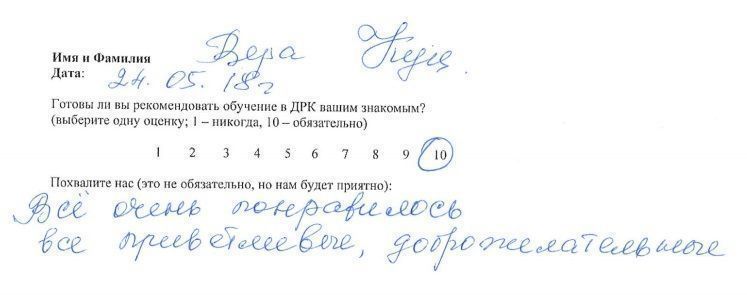 Имя и Фамилия Вера Куц.
Дата: 24. 05. 18г
Готовы ли вы рекомендовать обучение в ДРК вашим знакомым?
(выберите одну оценку; 1 – никогда, 10 – обязательно)
1 2 3 4 5 6 7 8 9 10
Похвалите нас (это не обязательно, но нам будет приятно):
Всё очень понравилось
все приветливые, доброжелательные